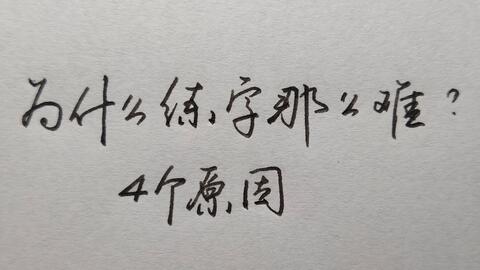 为什么练字那么难?
4个原因